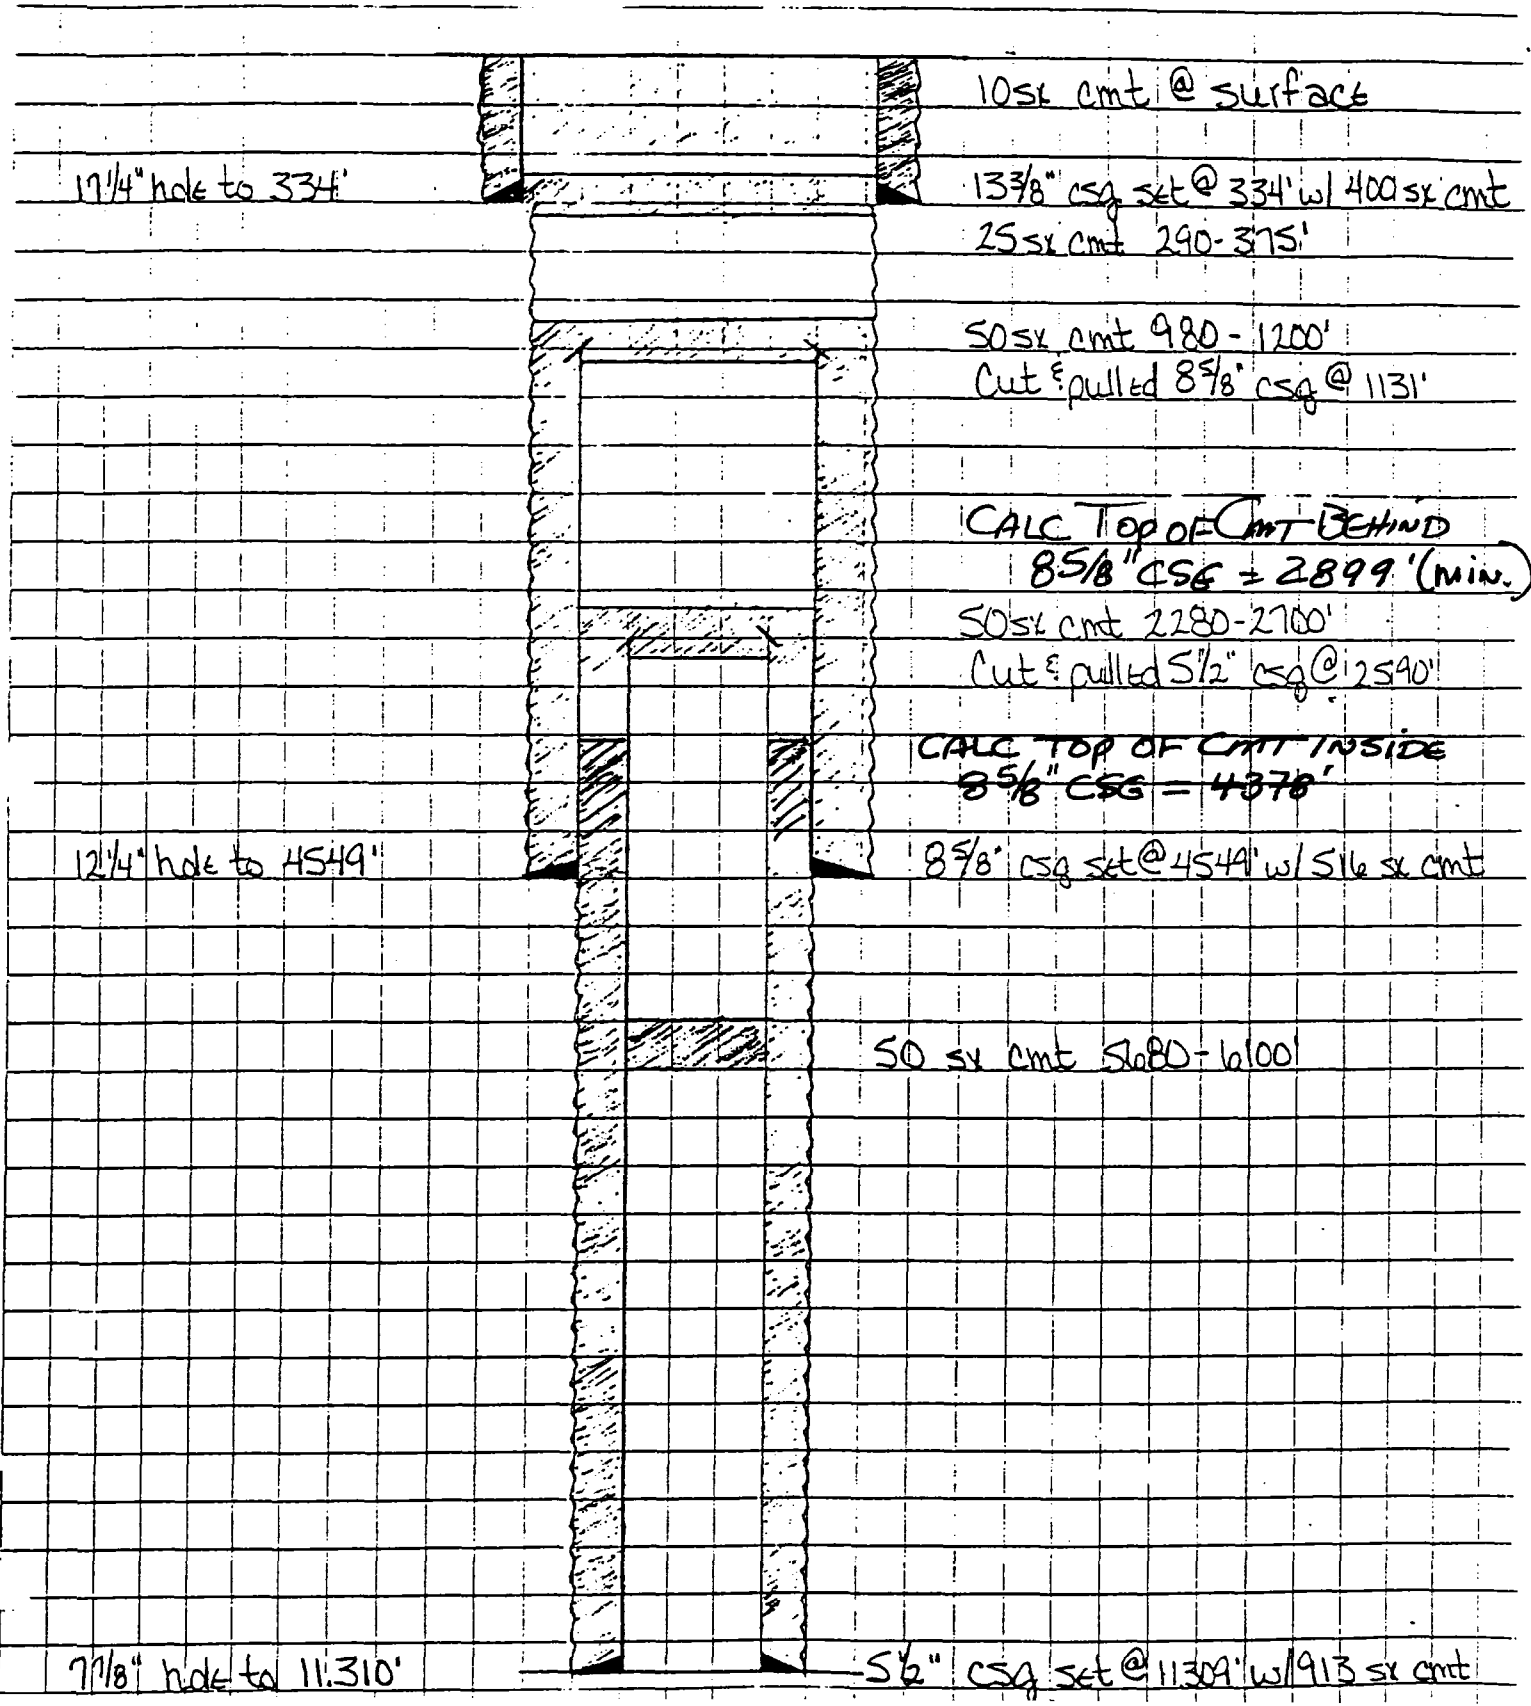 10sx cmt @ surface
17 1/4" hole to 334'
13 3/8" csg set @ 334' w/ 400 sx cmt
25 sx cmt 290-375'
50 sx cmt 980-1200'
Cut & pulled 8 5/8" csg @ 1131'
CALC TOP OF CMT BEHIND
8 5/8" CSG = 2899' (MIN.)
50 sx cmt 2280-2700'
Cut & pulled 5 1/2" csg @ 2590'
CALC TOP OF CMT INSIDE
8 5/8" CSG = 4378'
12 1/4" hole to 4549'
8 5/8" csg set @ 4549' w/ 516 sx cmt
50 sx cmt 5680-6100'
7 7/8" hole to 11,310'
5 1/2" csg set @ 11309' w/ 913 sx cmt